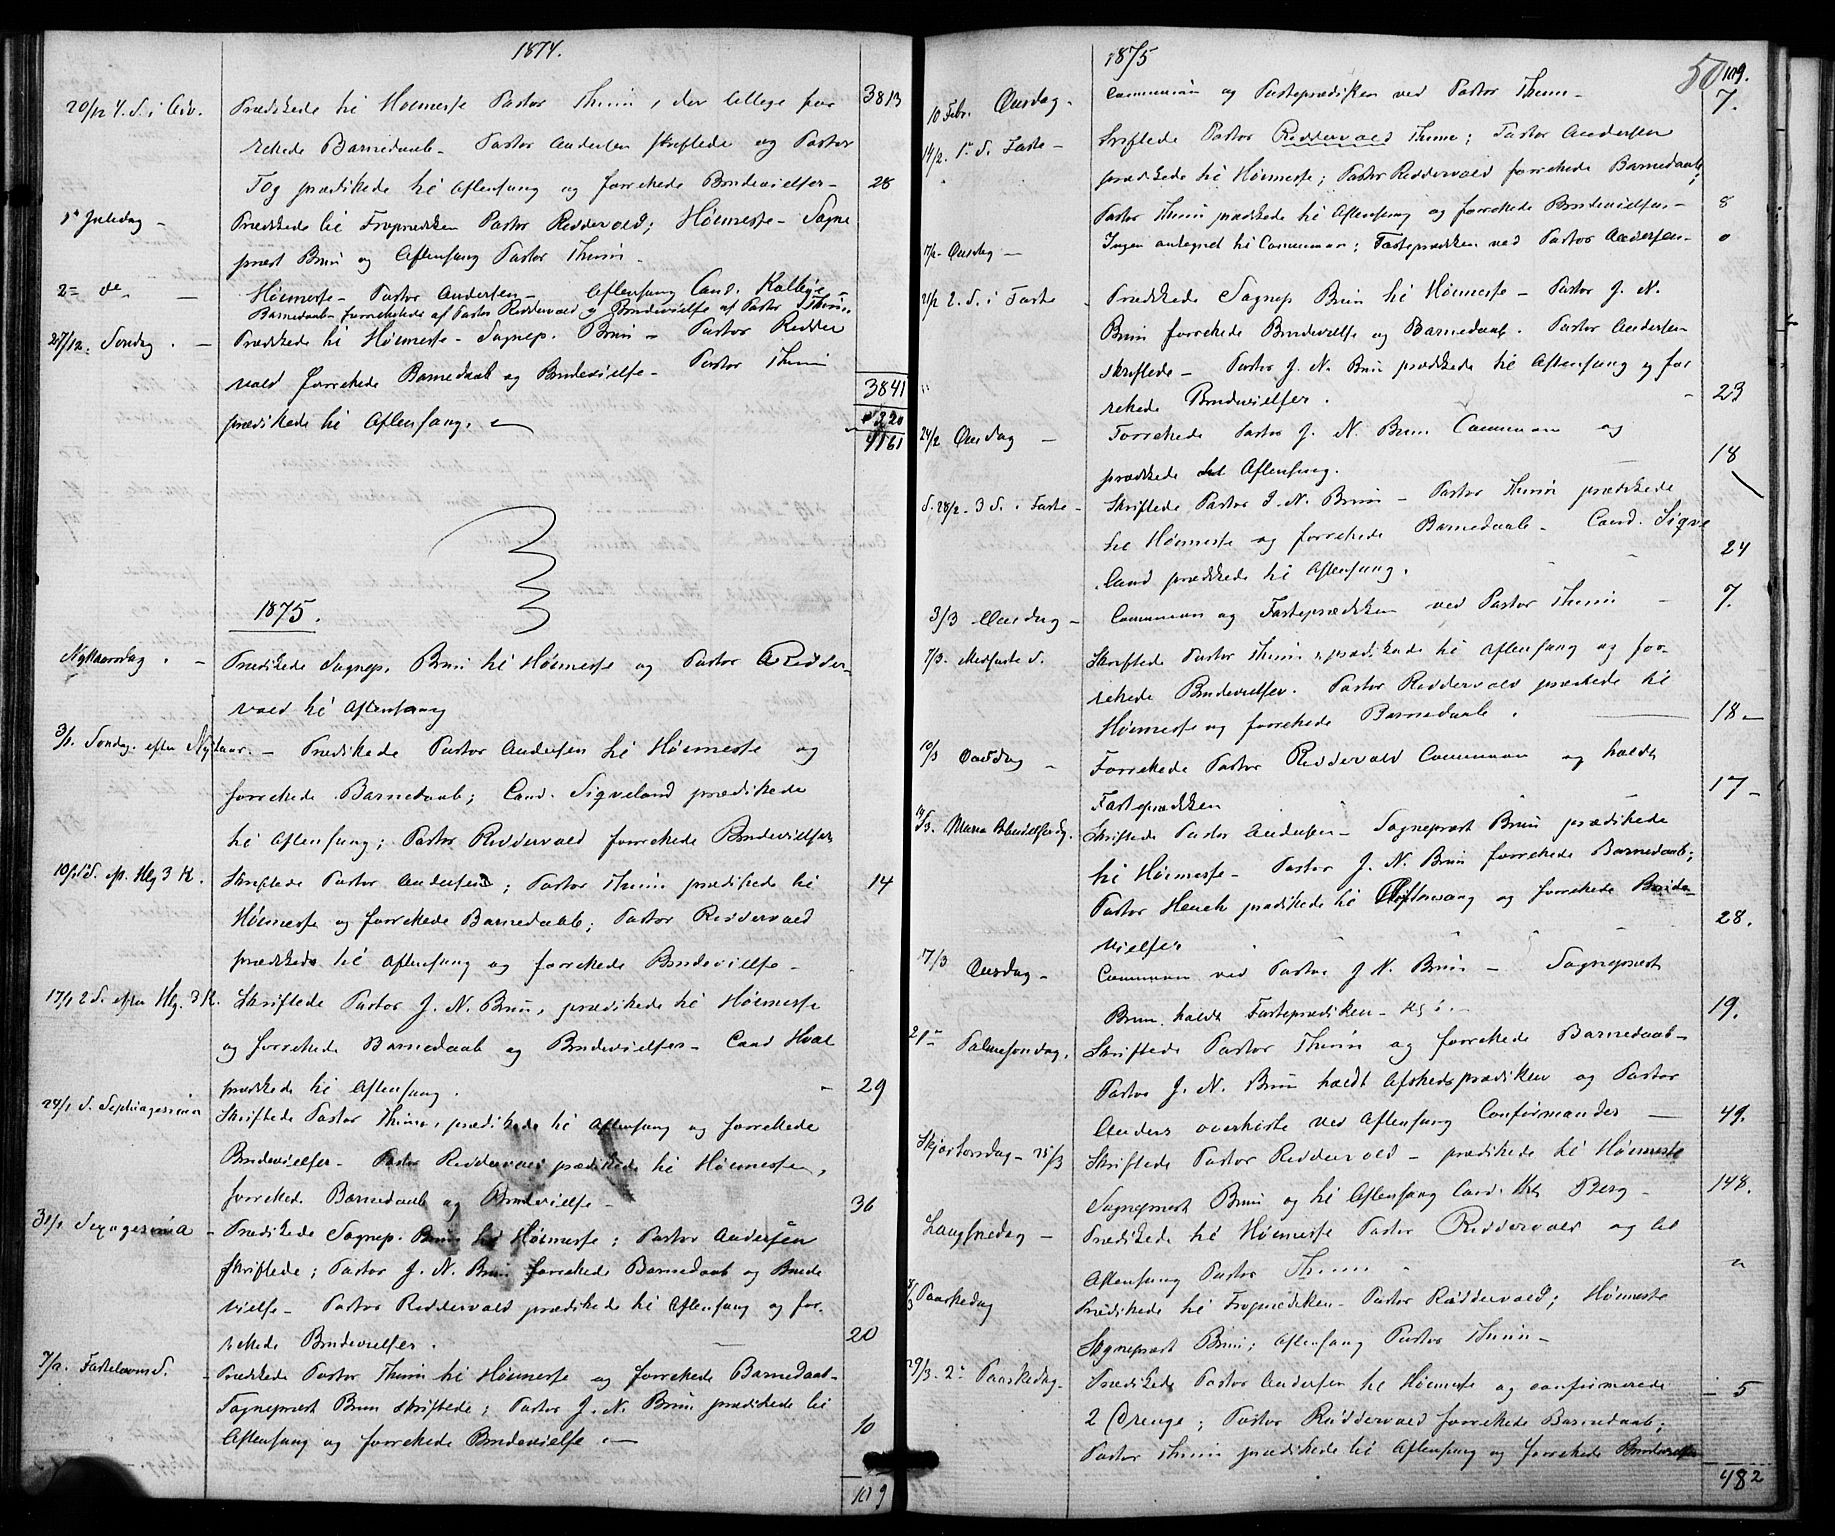 1874.
20/12 4. S. i Adv. Prædikede til Høimesse Pastor Thurin, der tillige for 3813
rettede Barnedaab – Pastor Andersen skriftede og Pastor
Tog prædikede til Aftensang og forrettede Brudevielser – 28
1ste Juledag – Prædikede til Froprædiken Pastor Reddervold; Høimesse – Sogne
præst Brun og Aftensang Pastor Thurin.
2den do. – Høimesse – Pastor Andersen – Aftensang Cand. Kolbye –
Barnedaab forrettedes af Pastor Reddervold og Brudevielse af Pastor Thurin.
27/12. Søndag. – Prædikede til Høimesse – Sognep. Brun – Pastor Redder
vold forrettede Barnedaab og Brudevielse – Pastor Thurin 3841
prædikede til Aftensang. – 320
4161
1875.
Nyttaarsdag. – Prædikede Sognep. Brun til Høimesse og Pastor Redder-
vold til Aftensang
3/1. Søndag efter Nytaar. – Prædikede Pastor Andersen til Høimesse og
forrettede Barnedaab; Cand. Sigveland prædikede
til Aftensang; Pastor Reddervold forrettede Brudevielser
10/1 1 S. ef. Hlg 3 K. Skriftede Pastor Andersen; Pastor Thurin prædikede til 14
Høimesse og forrettede Barnedaab; Pastor Reddervold
prædikede til Aftensang og forrettede Brudevielse –
17/1 2 S. efter Hlg. 3 K. Skriftede Pastor J. N. Brun, prædikede til Høimesse
og forrettede Barnedaab og Brudevielser – Cand Hval
prædikede til Aftensang. – 29
24/1 S. Septuagesima Skriftede Pastor Thurin, prædikede til Aftensang og forrettede
Brudevielser – Pastor Reddervold prædikede til Høimessen,
forrettede Barnedaab og Brudevielse – 36
31/1 Sexagesima – Prædikede Sognep. Brun til Høimesse; Pastor Andersen
skriftede; Pastor J. N. Brun forrettede Barnedaab og Brude
vielse – Pastor Reddervold prædikede til Aftensang og for-
rettede Brudevielser. – 20
7/2. Fastelavns S. – Prædikede Pastor Thurin til Høimesse og forrettede Barnedaab –
Sognepræst Brun skriftede; Pastor J. N. Brun prædikede til
Aftensang og forrettede Brudevielse. – 10
109
1875
50 109.
10 Febr. Onsdag – Communion og Fasteprædiken ved Pastor Thurin – 7.
14/2. 1ste S. Faste – Skriftede Pastor Reddervold Thurin; Pastor Andersen
prædikede til Høimesse; Pastor Reddervold forrettede Barnedaab;
Pastor Thurin prædikede til Aftensang og forrettede Brudevielser – 8
17/2. Onsdag – Ingen antegnet til Communion; Fasteprædiken ved Pastor Andersen – 0
21/2 2. S. i Faste – Prædikede Sognep Brun til Høimesse – Pastor J. N.
Brun forrettede Brudevielse og Barnedaab. Pastor Andersen
skriftede – Pastor J. N. Brun prædikede til Aftensang og for
rettede Brudevielser. – 23
24/2 Onsdag – Forrettede Pastor J. N. Brun Communion og
prædikede til Aftensang. 18
S. 28/2. 3 S. i Faste – Skriftede Pastor J. N. Brun – Pastor Thurin prædikede
til Høimesse og forrettede Barnedaab – Cand. Sigve
land prædikede til Aftensang. 24
3/3 Onsdag – Communion og Fasteprædiken ved Pastor Thurin – 7.
7/3. Midfaste S. Skriftede Pastor Thurin, prædikede til Aftensang og for-
rettede Brudevielser. Pastor Reddervold prædikede til
Høimesse og forrettede Barnedaab. – 18 –
10/3 Onsdag – Forrettede Pastor Reddervold Communion og holdt
Fasteprædiken 17 –
14/3. Maria Bebudelsesdg. Skriftede Pastor Andersen – Sognepræst Brun prædikede
til Høimesse – Pastor J. N. Brun forrettede Barnedaab;
Pastor Heuch prædikede til Aftensang og forrettede Brude-
vielser 28.
17/3 Onsdag – Communion ved Pastor J. N. Brun – Sognepræst
Brun holdt Fasteprædiken – 19.
21de Palmesøndag. Skriftede Pastor Thurin og forrettede Barnedaab –
Pastor J. N. Brun holdt Afskedsprædiken og Pastor
Anders overhørte ved Aftensang Confirmander – 49.
Skjærtorsdag – 25/3 Skriftede Pastor Reddervold – prædikede til Høimesse
Sognepræst Brun og til Aftensang Cand. Berg – 148.
Langfredag – Prædikede til Høimesse Pastor Reddervold og til
Aftensang Pastor Thurin. "
28/3 Paaskedag Prædikede til Froprædiken – Pastor Reddervold; Høimesse
Sognepræst Brun; Aftensang Pastor Thurin –
29/3. 2den Paaskedag – Prædikede Pastor Andersen til Høimesse og confirmerede – 5
2 Drenge; Pastor Reddervold forrettede Barnedaab;
Pastor Thurin prædikede til Aftensang og forrettede Brudevielser
482